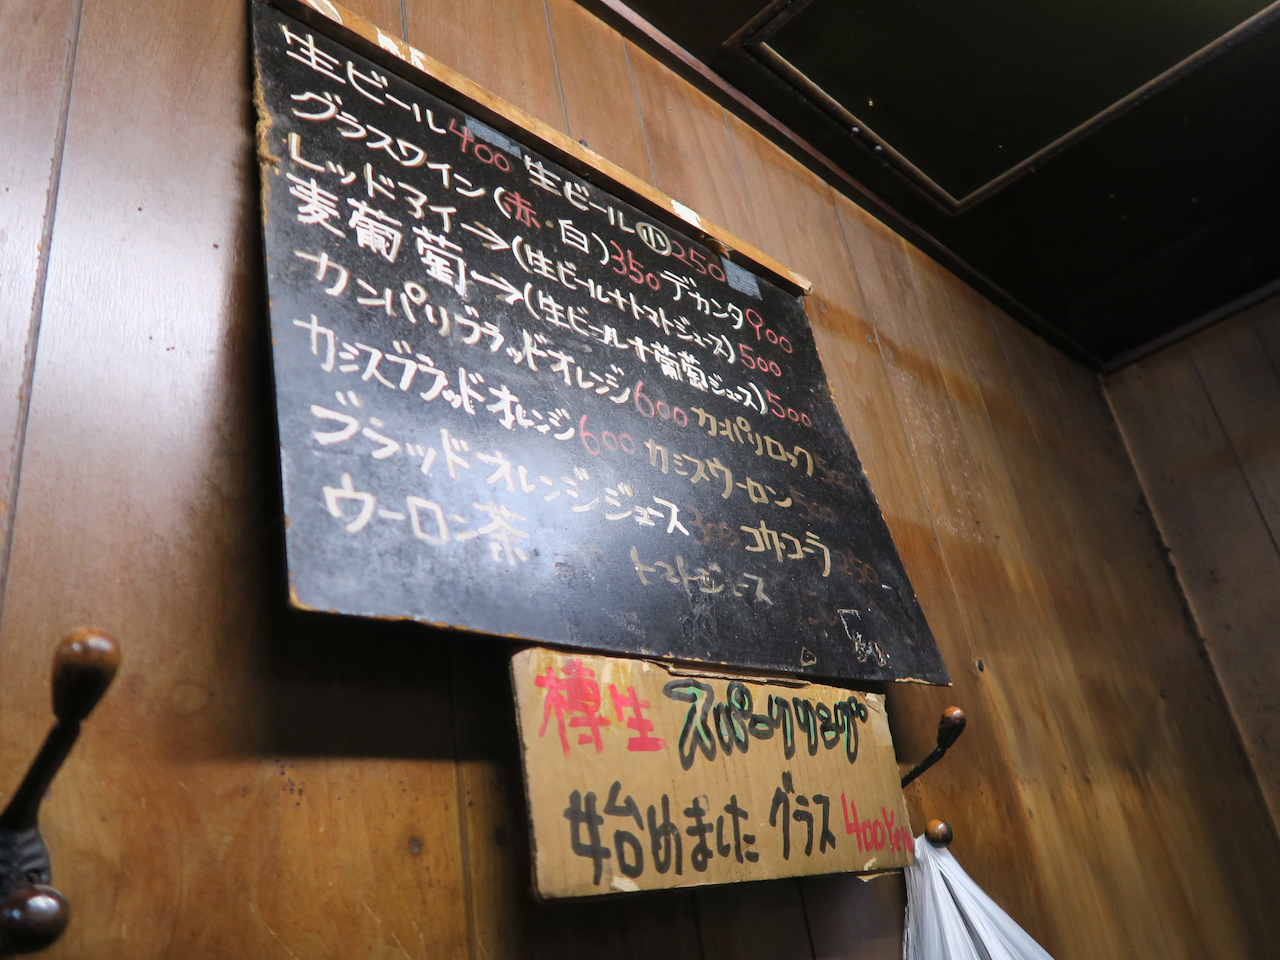 生ビール400 生ビール小250
グラスワイン(赤・白)350 デカンタ900
レッドアイ→(生ビール+トマトジュース)500
麦葡萄→(生ビール+葡萄ジュース)500
カンパリブラッドオレンジ600 カンパリロック
カシスブラッドオレンジ600 カシスウーロン
ブラッドオレンジジュース300 コカ・コーラ250
ウーロン茶 トマトジュース
樽生 スパークリング
始めました グラス 400Yen